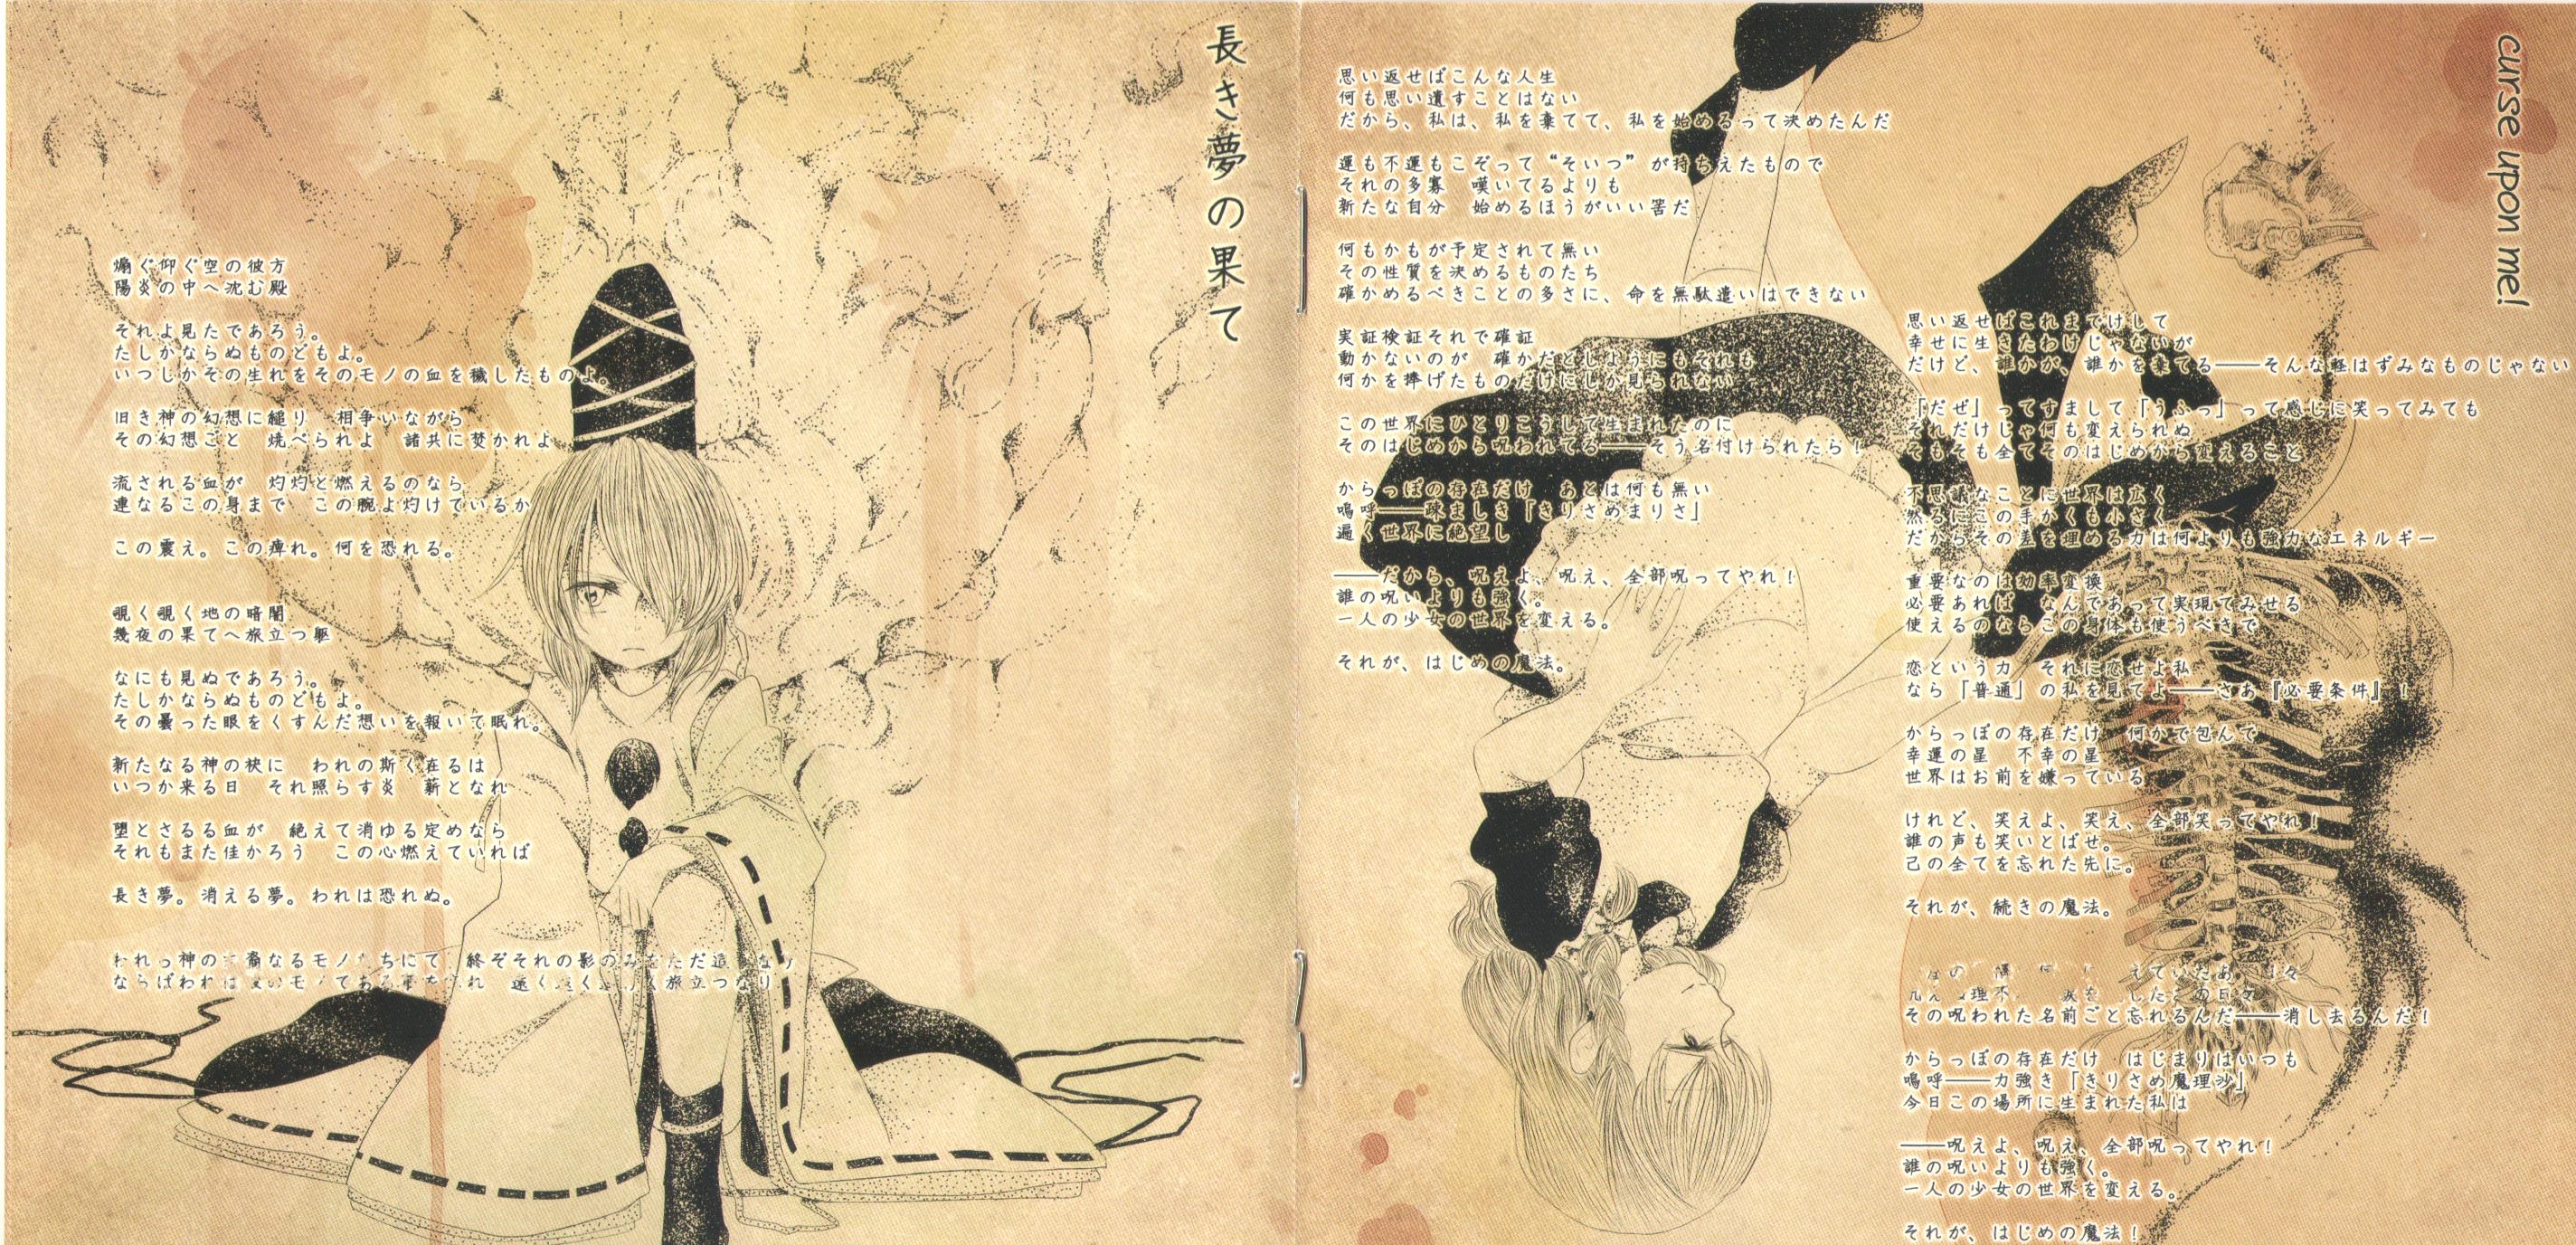 長き夢の果て
煽ぐ仰ぐ空の彼方
陽炎の中へ沈む殿
それよ見たであろう。
たしかならぬものどもよ。
いつしかその生れをそのモノの血を穢したものよ。
旧き神の幻想に縋り　相争いながら
その幻想ごと　焼べられよ　諸共に焚かれよ
流される血が　灼灼と燃えるのなら
連なるこの身まで　この腕よ灼けているか
この震え。この痺れ。何を恐れる。
覗く覗く地の暗闇
幾夜の果てへ旅立つ躯
なにも見ぬであろう。
たしかならぬものどもよ。
その曇った眼をくすんだ想いを報いて眠れ。
新たなる神の袂に　われの斯く在るは
いつか来る日　それ照らす炎　薪となれ
堕とさるる血が　絶えて消ゆる定めなら
それもまた佳かろう　この心燃えていれば
長き夢。消える夢。われは恐れぬ。
神の 裔なるモノ ちにて　終ぞそれの影のみをただ追
ならばわれは のモノである 旅立つなり
curse upon me!
思い返せばこんな人生
何も思い遺すことはない
だから、私は、私を棄てて、私を始めるって決めたんだ
運も不運もこぞって“そいつ”が持ちえたもので
それの多寡　嘆いてるよりも
新たな自分　始めるほうがいい筈だ
何もかもが予定されて無い
その性質を決めるものたち
確かめるべきことの多さに、命を無駄遣いはできない
実証検証それで確証
動かないのが　確かだとしようにもそれも
何かを捧げたものだけにしか見られない
この世界にひとりこうして生まれたのに
そのはじめから呪われてる――そう名付けられたら！
からっぽの存在だけ　あとは何も無い
嗚呼――疎ましき「きりさめまりさ」
遍く世界に絶望し
――だから、呪えよ、呪え、全部呪ってやれ！
誰の呪いよりも強く。
一人の少女の世界を変える。
それが、はじめの魔法。
思い返せばこれまでけして
幸せに生きたわけじゃないが
だけど、誰かが、誰かを棄てる――そんな軽はずみなものじゃない
「だぜ」ってすまして「うふっ」って感じに笑ってみても
それだけじゃ何も変えられぬ
そもそも全てそのはじめから変えること
不思議なことに世界は広く
然るにこの手かくも小さく
だからその差を埋める力は何よりも強力なエネルギー
重要なのは効率変換
必要あれば　なんであって実現てみせる
使えるのならこの身体も使うべきで
恋という力　それに恋せよ私
なら「普通」の私を見てよ――さあ『必要条件』！
からっぽの存在だけ　何かで包んで
幸運の星　不幸の星
世界はお前を嫌っている
けれど、笑えよ、笑え、全部笑ってやれ！
誰の声も笑いとばせ。
己の全てを忘れた先に。
それが、続きの魔法。
えていたあ 日々
理不 涙を したこの日々
その呪われた名前ごと忘れるんだ――消し去るんだ！
からっぽの存在だけ　はじまりはいつも
嗚呼――力強き「きりさめ魔理沙」
今日この場所に生まれた私は
――呪えよ、呪え、全部呪ってやれ！
誰の呪いよりも強く。
一人の少女の世界を変える。
それが、はじめの魔法！